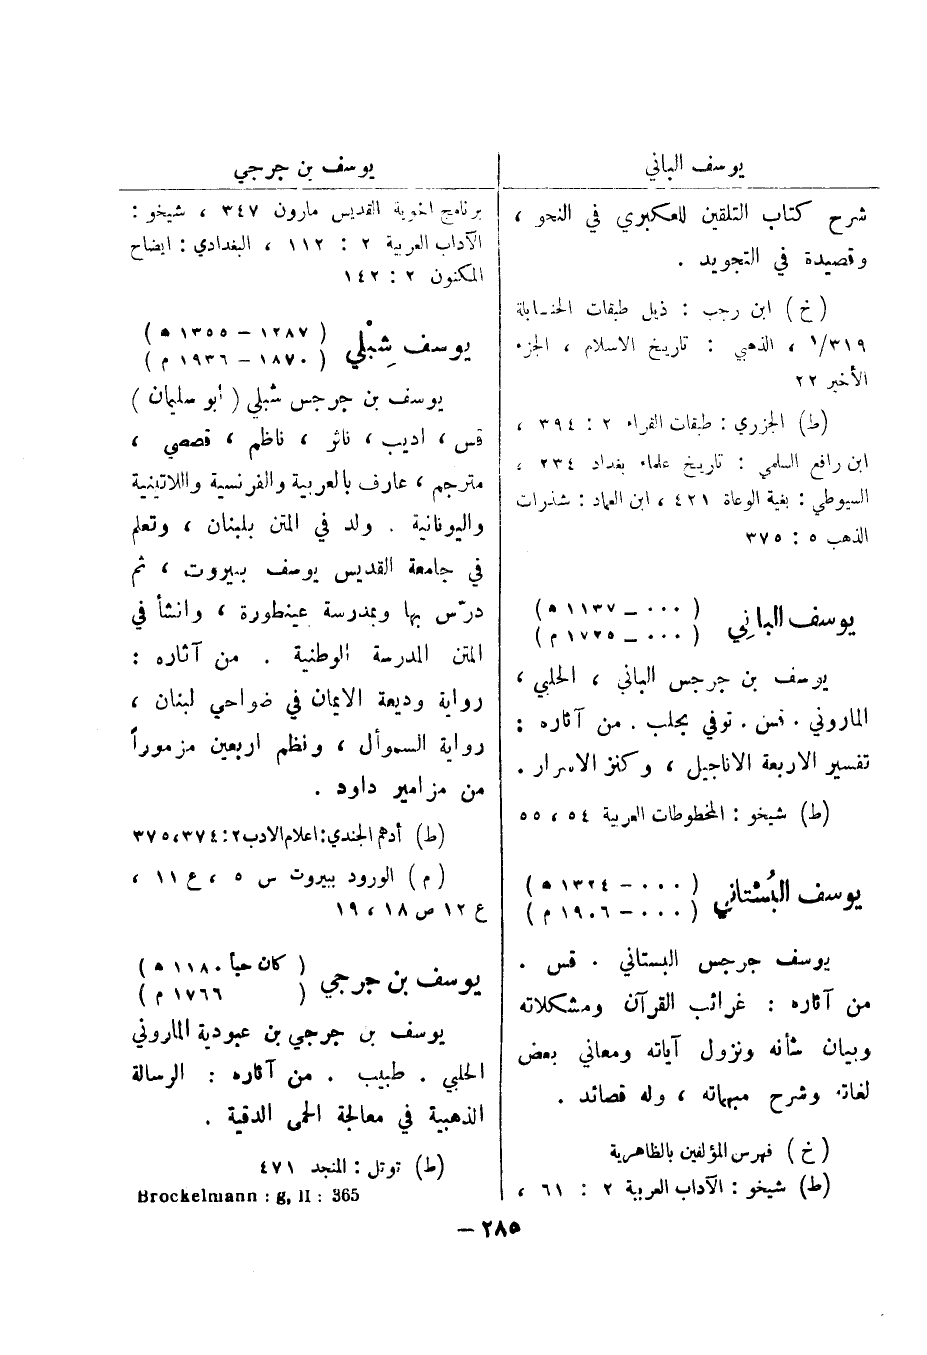 يوسف الباني
شرح كتاب التلقين للعكبري في النحو ،
وقصيدة في التجويد .
(خ) ابن رجب : ذيل طبقات الحنابلة
١/٣١٩ ، الذهبي : تاريخ الاسلام ، الجزء
الأخير ٢٢
(ط) الجزري : طبقات القراء ٢ : ٣٩٤ ،
ابن رافع السلمي : تاريخ علماء بغداد ٢٣٤ ،
السيوطي : بغية الوعاة ٤٢١ ، ابن العماد : شذرات
الذهب ٥ : ٣٧٥
يوسف الباني (٠٠٠ – ١١٣٧ ه)
(٠٠٠ – ١٧٢٥ م)
يوسف بن جرجس الباني ، الحلبي ،
الماروني . قس . توفي بحلب . من آثاره :
تفسير الاربعة الاناجيل ، وكنز الاسرار .
(ط) شيخو : المخطوطات العربية ٥٤ ، ٥٥
يوسف البُسْتاني (٠٠٠ – ١٣٢٤ ه)
(٠٠٠ – ١٩٠٦ م)
يوسف جرجس البستاني . قس .
من آثاره : غرائب القرآن ومشكلاته
وبيان شأنه ونزول آياته ومعاني بعض
لغاته وشرح مبهماته ، وله قصائد .
(خ) فهرس المؤلفين بالظاهرية
(ط) شيخو : الآداب العربية ٢ : ٦١ ،
يوسف بن جرجي
برنامج اخوية القديس مارون ٣٤٧ ، شيخو :
الآداب العربية ٢ : ١١٢ ، البغدادي : ايضاح
المكنون ٢ : ١٤٢
يوسف شِبْلي (١٢٨٧ – ١٣٥٥ ه)
(١٨٧٠ – ١٩٣٦ م)
يوسف بن جرجس شبلي (أبو سليمان)
قس ، اديب ، ناثر ، ناظم ، قصصي ،
مترجم ، عارف بالعربية والفرنسية واللاتينية
واليونانية . ولد في المتن بلبنان ، وتعلم
في جامعة القديس يوسف ببيروت ، ثم
درّس بها وبمدرسة عينطورة ، وانشأ في
المتن المدرسة الوطنية . من آثاره :
رواية وديعة الايمان في ضواحي لبنان ،
رواية السموأل ، ونظم اربعين مزموراً
من مزامير داود .
(ط) أدهم الجندي : اعلام الادب ٢ : ٣٧٤ ، ٣٧٥
(م) الورود ببيروت س ٥ ، ع ١١ ،
ع ١٢ ص ١٨ ، ١٩
يوسف بن جرجي (كان حياً ١١٨٠ ه)
(١٧٦٦ م)
يوسف بن جرجي بن عبودية الماروني
الحلبي . طبيب . من آثاره : الرسالة
الذهبية في معالجة الحمى الدقية .
(ط) توتل : المنجد ٤٧١
Brockelmann : g, II : 365
– ٢٨٥